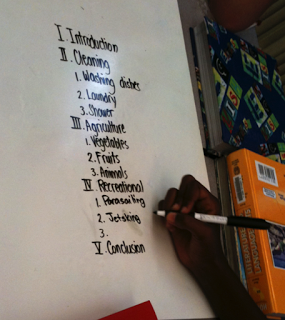 I. Introduction
II. Cleaning
1. Washing dishes
2. Laundry
3. Shower
III. Agriculture
1. Vegetables
2. Fruits
3. Animals
IV. Recreational
1. Parasailing
2. Jetskiing
3.
V. Conclusion